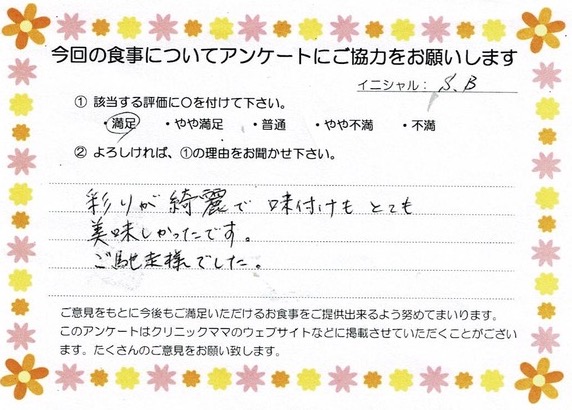 今回の食事についてアンケートにご協力をお願いします
イニシャル： S.B
① 該当する評価に○を付けて下さい。
・満足 ・やや満足 ・普通 ・やや不満 ・不満
② よろしければ、①の理由をお聞かせ下さい。
彩りが綺麗で 味付けも とても
美味しかったです。
ご馳走様でした。
ご意見をもとに今後もご満足いただけるお食事をご提供出来るよう努めてまいります。
このアンケートはクリニックママのウェブサイトなどに掲載させていただくことがござい
ます。たくさんのご意見をお願い致します。